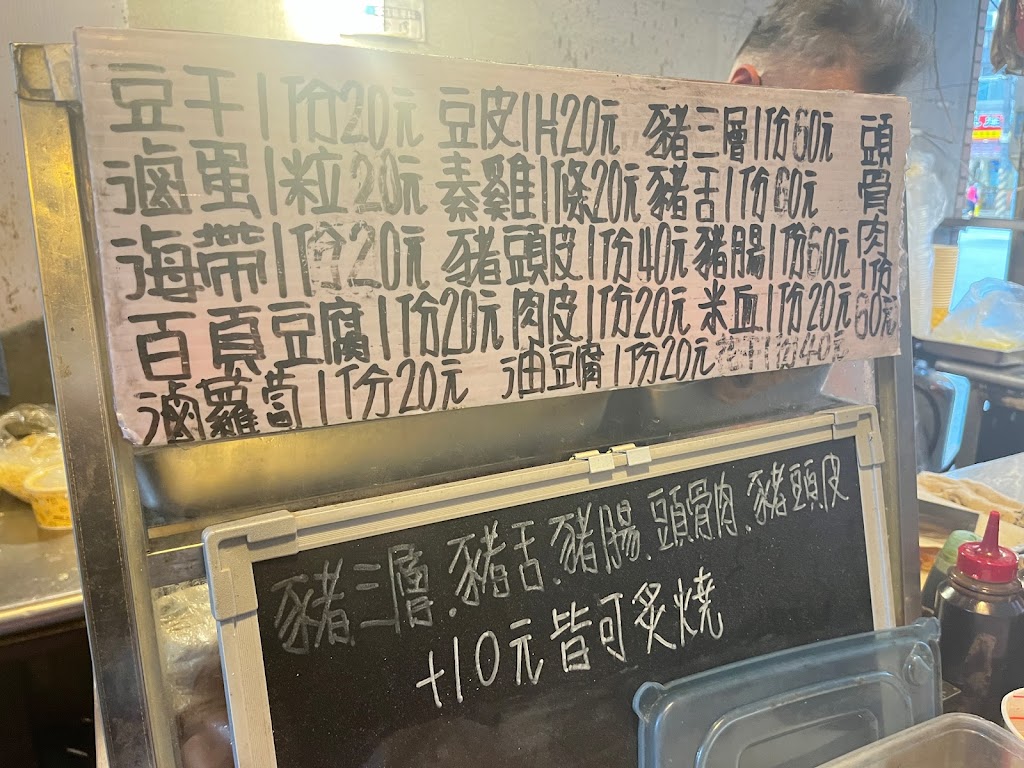 豆干1份20元 豆皮1片20元 豬三層1份60元
滷蛋1粒20元 素雞1條20元 豬舌1份60元
海帶1份20元 豬頭皮1份40元 豬腸1份60元
百頁豆腐1份20元 肉皮1份20元 米血1份20元
滷蘿蔔1份20元 油豆腐1份20元 1份40元
頭骨肉1份60元
豬三層.豬舌.豬腸.頭骨肉.豬頭皮
+10元皆可炙燒